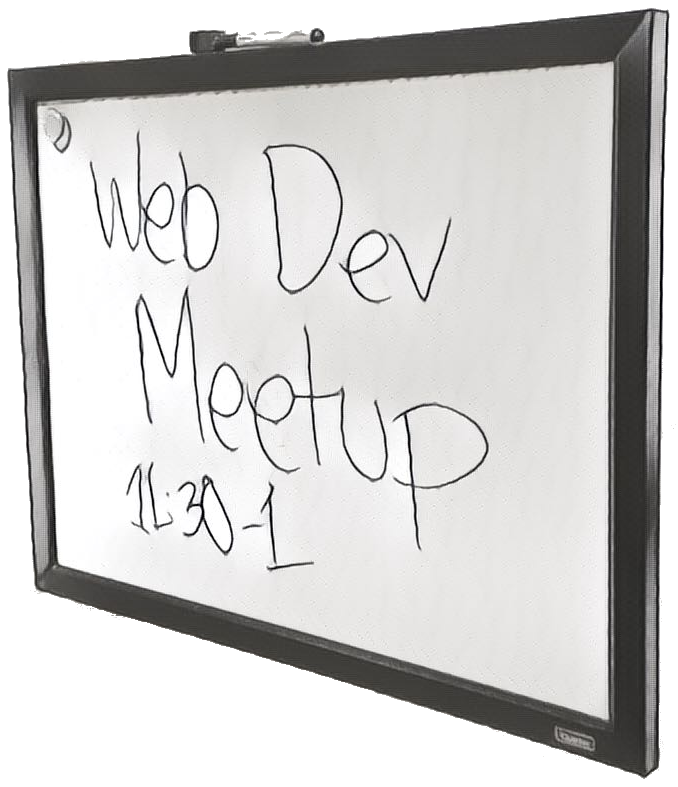 Web Dev
Meetup
11:30-1
Quartet